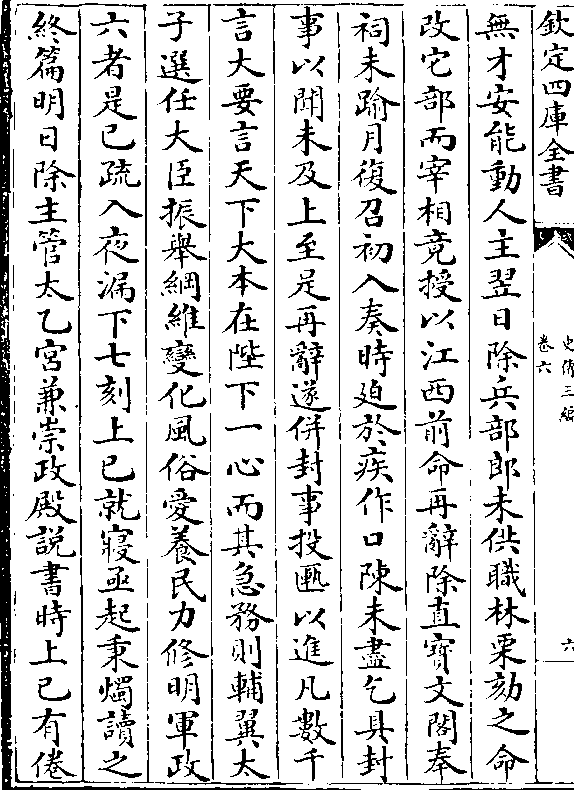 欽定四庫全書
史傳三編
卷六
六
無才安能動人主翌日除兵部郎未供職林栗劾之命
改它部而宰相竟授以江西前命再辭除直寶文閣奉
祠未踰月復召初入奏時廹於疾作口陳未盡乞具封
事以聞未及上至是再辭遂併封事投匭以進凡數千
言大要言天下大本在陛下一心而其急務則輔翼太
子選任大臣振舉綱維變化風俗愛養民力修明軍政
六者是已疏入夜漏下七刻上已就寢亟起秉燭讀之
終篇明日除主管太乙宮兼崇政殿說書時上已有倦